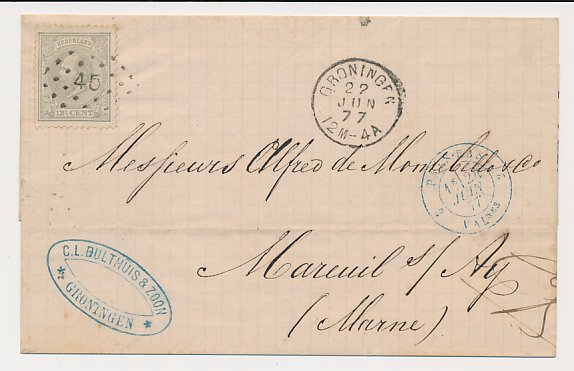 NEDERLAND
45
12½ CENT
GRONINGEN
22
JUN
77
12M-4A
Messieurs Alfred de Montebello & Co
PAYS-BAS
JUIN
77
VALNES
Mareuil s/ Ay
(Marne)
C.L. BULTHUIS & ZOON
* GRONINGEN *